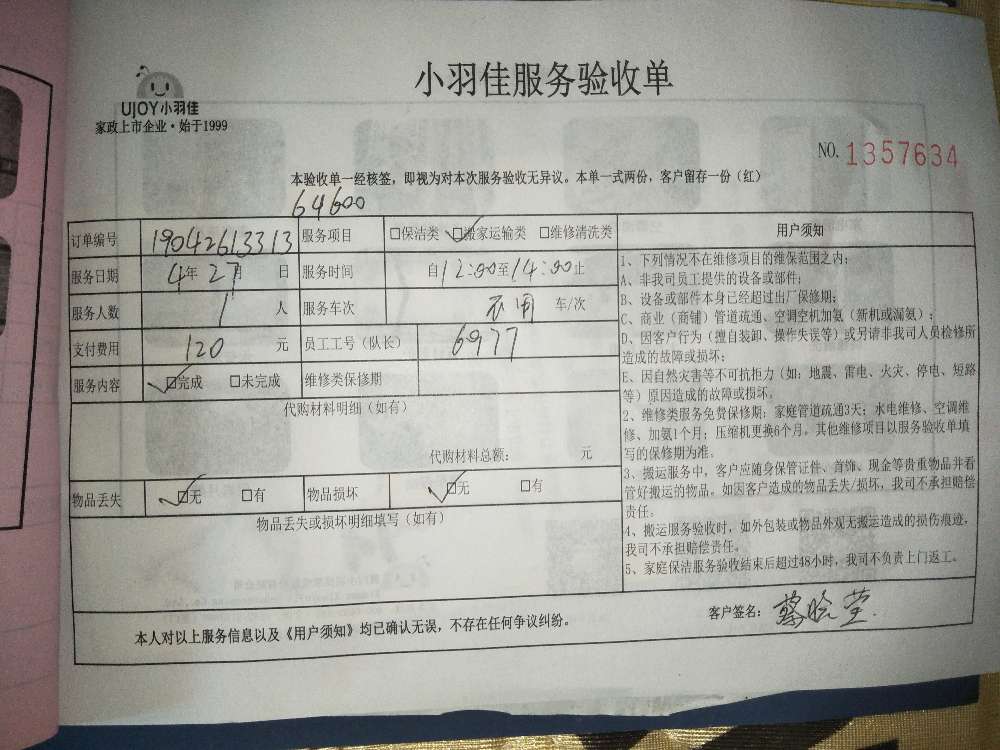 小羽佳服务验收单
UJOY小羽佳
家政上市企业·始于1999
NO. 1357634
本验收单一经核签，即视为对本次服务验收无异议。本单一式两份，客户留存一份（红）
64600
订单编号 19042613313 服务项目 □保洁类 ☑搬家运输类 □维修清洗类
服务日期 4年27月 日 服务时间 自12:00至14:00止
服务人数 1 人 服务车次 不用 车/次
支付费用 120 元 员工工号（队长） 6977
服务内容 ☑完成 □未完成 维修类保修期
代购材料明细（如有）
代购材料总额： 元
物品丢失 ☑无 □有 物品损坏 ☑无 □有
物品丢失或损坏明细填写（如有）
用户须知
1、下列情况不在维修项目的维保范围之内；
A、非我司员工提供的设备或部件；
B、设备或部件本身已经超过出厂保修期；
C、商业（商铺）管道疏通、空调空机加氨（新机或漏氨）；
D、因客户行为（擅自装卸、操作失误等）或另请非我司人员检修所
造成的故障或损坏；
E、因自然灾害等不可抗拒力（如：地震、雷电、火灾、停电、短路
等）原因造成的故障或损坏。
2、维修类服务免费保修期：家庭管道疏通3天；水电维修、空调维
修、加氨1个月；压缩机更换6个月。其他维修项目以服务验收单填
写的保修期为准。
3、搬运服务中，客户应随身保管证件、首饰、现金等贵重物品并看
管好搬运的物品。如因客户造成的物品丢失/损坏，我司不承担赔偿
责任。
4、搬运服务验收时，如外包装或物品外观无搬运造成的损伤痕迹，
我司不承担赔偿责任。
5、家庭保洁服务验收结束后超过48小时，我司不负责上门返工。
本人对以上服务信息以及《用户须知》均已确认无误，不存在任何争议纠纷。
客户签名：蔡晓莹